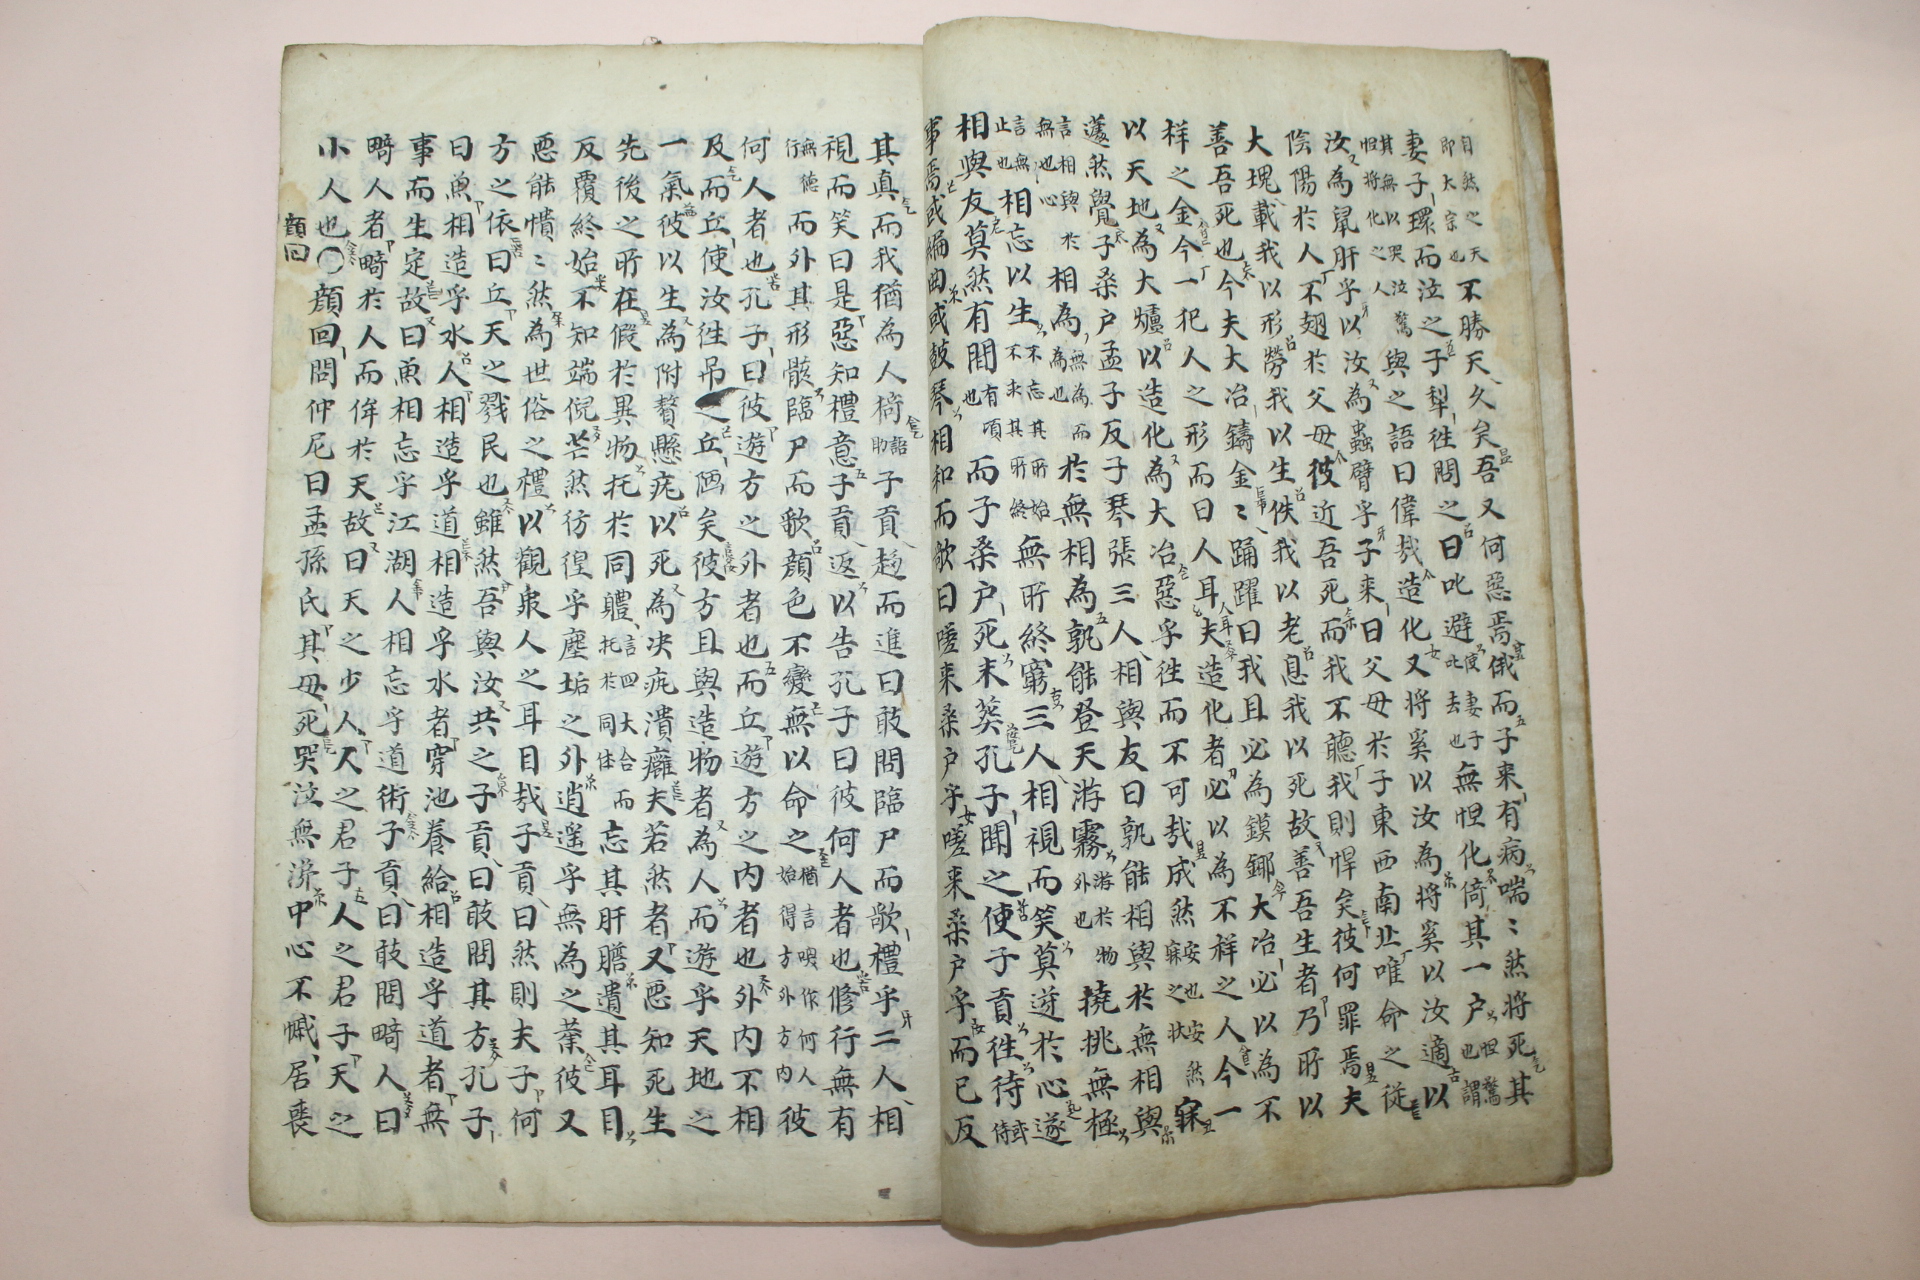 自然之天即大宗也不勝天久矣吾又何惡焉俄而子来有病喘〻然将死其
妻子環而泣之子犁徃問之曰叱避使妻子此去也無怛化倚其一户怛驚也謂
其無以哭泣驚怛将化之人與之語曰偉㦲造化又将奚以汝為将奚以汝適以
汝為鼠肝乎以汝為蟲臂乎子来曰父母於子東西南北唯命之従
陰陽於人不翅於父母彼近吾死而我不聽我則悍矣彼何罪焉夫
大塊載我以形勞我以生佚我以老息我以死故善吾生者乃所以
善吾死也今夫大冶鑄金〻踊躍曰我且必為鏌鋣大冶必以為不
祥之金今一犯人之形而曰人耳人耳夫造化者必以為不祥之人今一
以天地為大爐以造化為大冶惡乎徃而不可㦲成然安也安然寐之状寐
蘧然覺子桑户孟子反子琴張三人相與友曰孰能相與於無相與
言相與於無也心相為無為而為也於無相為孰能登天游霧游於物外也撓挑無極
言無止也相忘以生不忘其所始不来其所終無所終窮三人相視而笑莫逆於心遂
相與友莫然有間有頃也而子桑户死末葬孔子聞之使子貢徃待或侍
事焉或編曲或鼓琴相和而歌曰嗟来桑户乎嗟来桑户乎而已反
其真而我猶為人猗語助子貢趍而進曰敢問臨尸而歌禮乎二人相
視而笑曰是惡知禮意子貢返以告孔子曰彼何人者也修行無有
無德行而外其形骸臨尸而歌顔色不變無以命之猶言喚作何人始得方外方内彼
何人者也孔子曰彼遊方之外者也而丘遊方之内者也外内不相
及而丘使汝徃吊之丘陋矣彼方且與造物者為人而遊乎天地之
一氣彼以生為附贅懸疣以死為决疣潰癰夫若然者又惡知死生
先後之所在假於異物托於同體言四大合托於同体而忘其肝膽遺其耳目
反覆終始不知端倪芒然彷徨乎塵垢之外逍遥乎無為之業彼又
惡能憒〻然為世俗之禮以觀衆人之耳目㦲子貢曰然則夫子何
方之依曰丘天之戮民也雖然吾與汝共之子貢曰敢問其方孔子
曰魚相造乎水人相造乎道相造乎水者穿池養給相造乎道者無
事而生定故曰魚相忘乎江湖人相忘乎道術子貢曰敢問畸人曰
畸人者畸於人而侔於天故曰天之少人人之君子人之君子天之
小人也〇顔回問仲尼曰孟孫氏其母死哭泣無涕中心不慽居喪
顔回